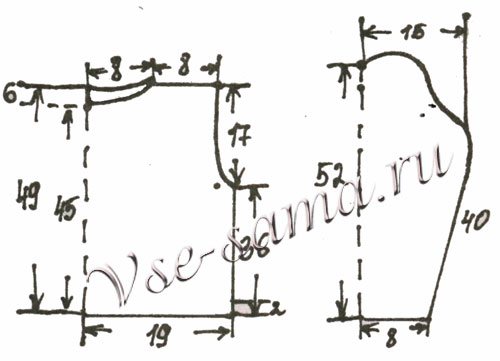 8 8 15
6
17
49 45 52
36 40
2
19 8
Vse-sama.ru